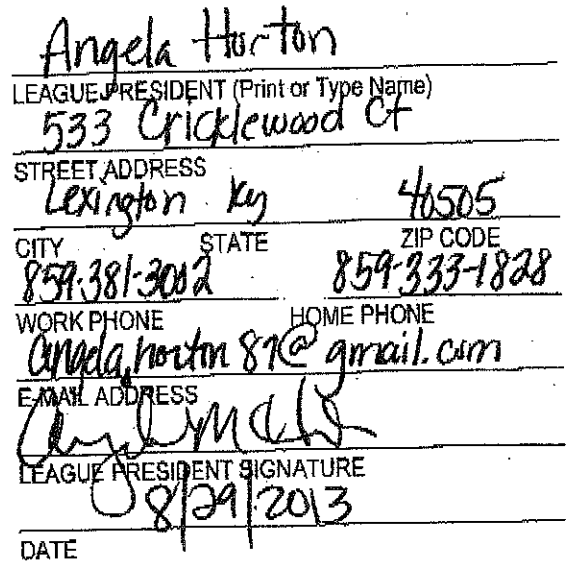 Angela Horton
LEAGUE PRESIDENT (Print or Type Name)
533 Cricklewood Ct
STREET ADDRESS
Lexington Ky 40505
CITY STATE ZIP CODE
859-381-3002 859-333-1828
WORK PHONE HOME PHONE
angela.horton 87@gmail.com
E-MAIL ADDRESS
LEAGUE PRESIDENT SIGNATURE
8/29/2013
DATE